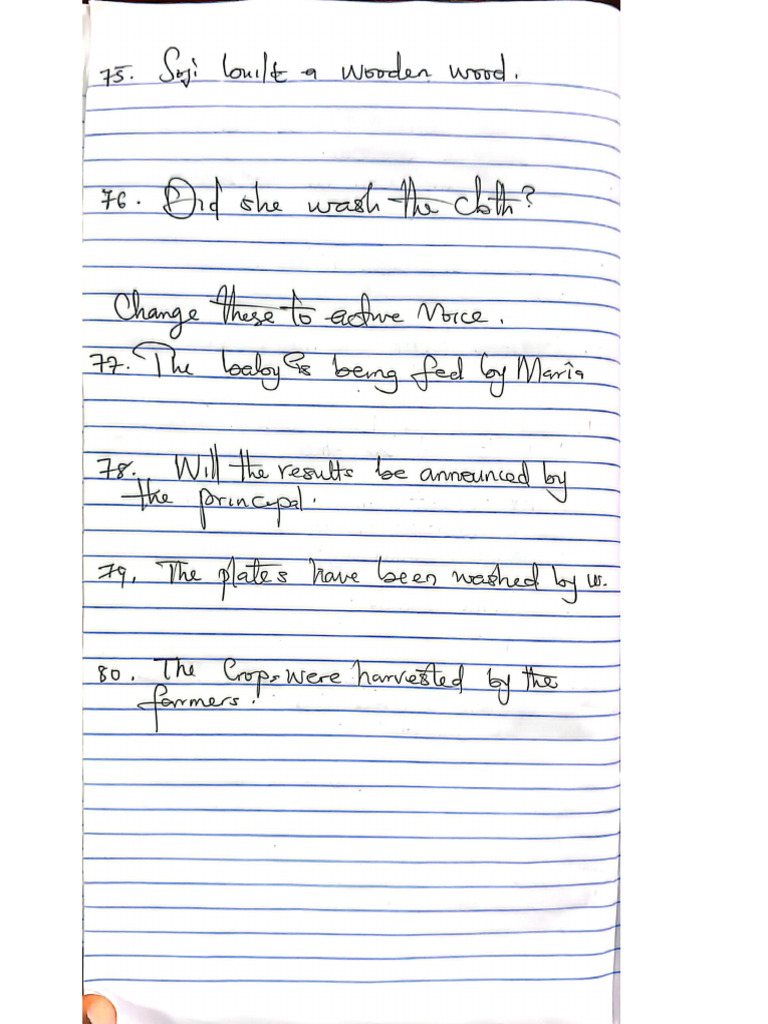 75. Soji built a wooden wood.
76. Did she wash the cloth?
Change these to active Voice.
77. The baby is being fed by Maria
78. Will the results be announced by
the principal.
79. The plates have been washed by us.
80. The Crops were harvested by the
farmers.